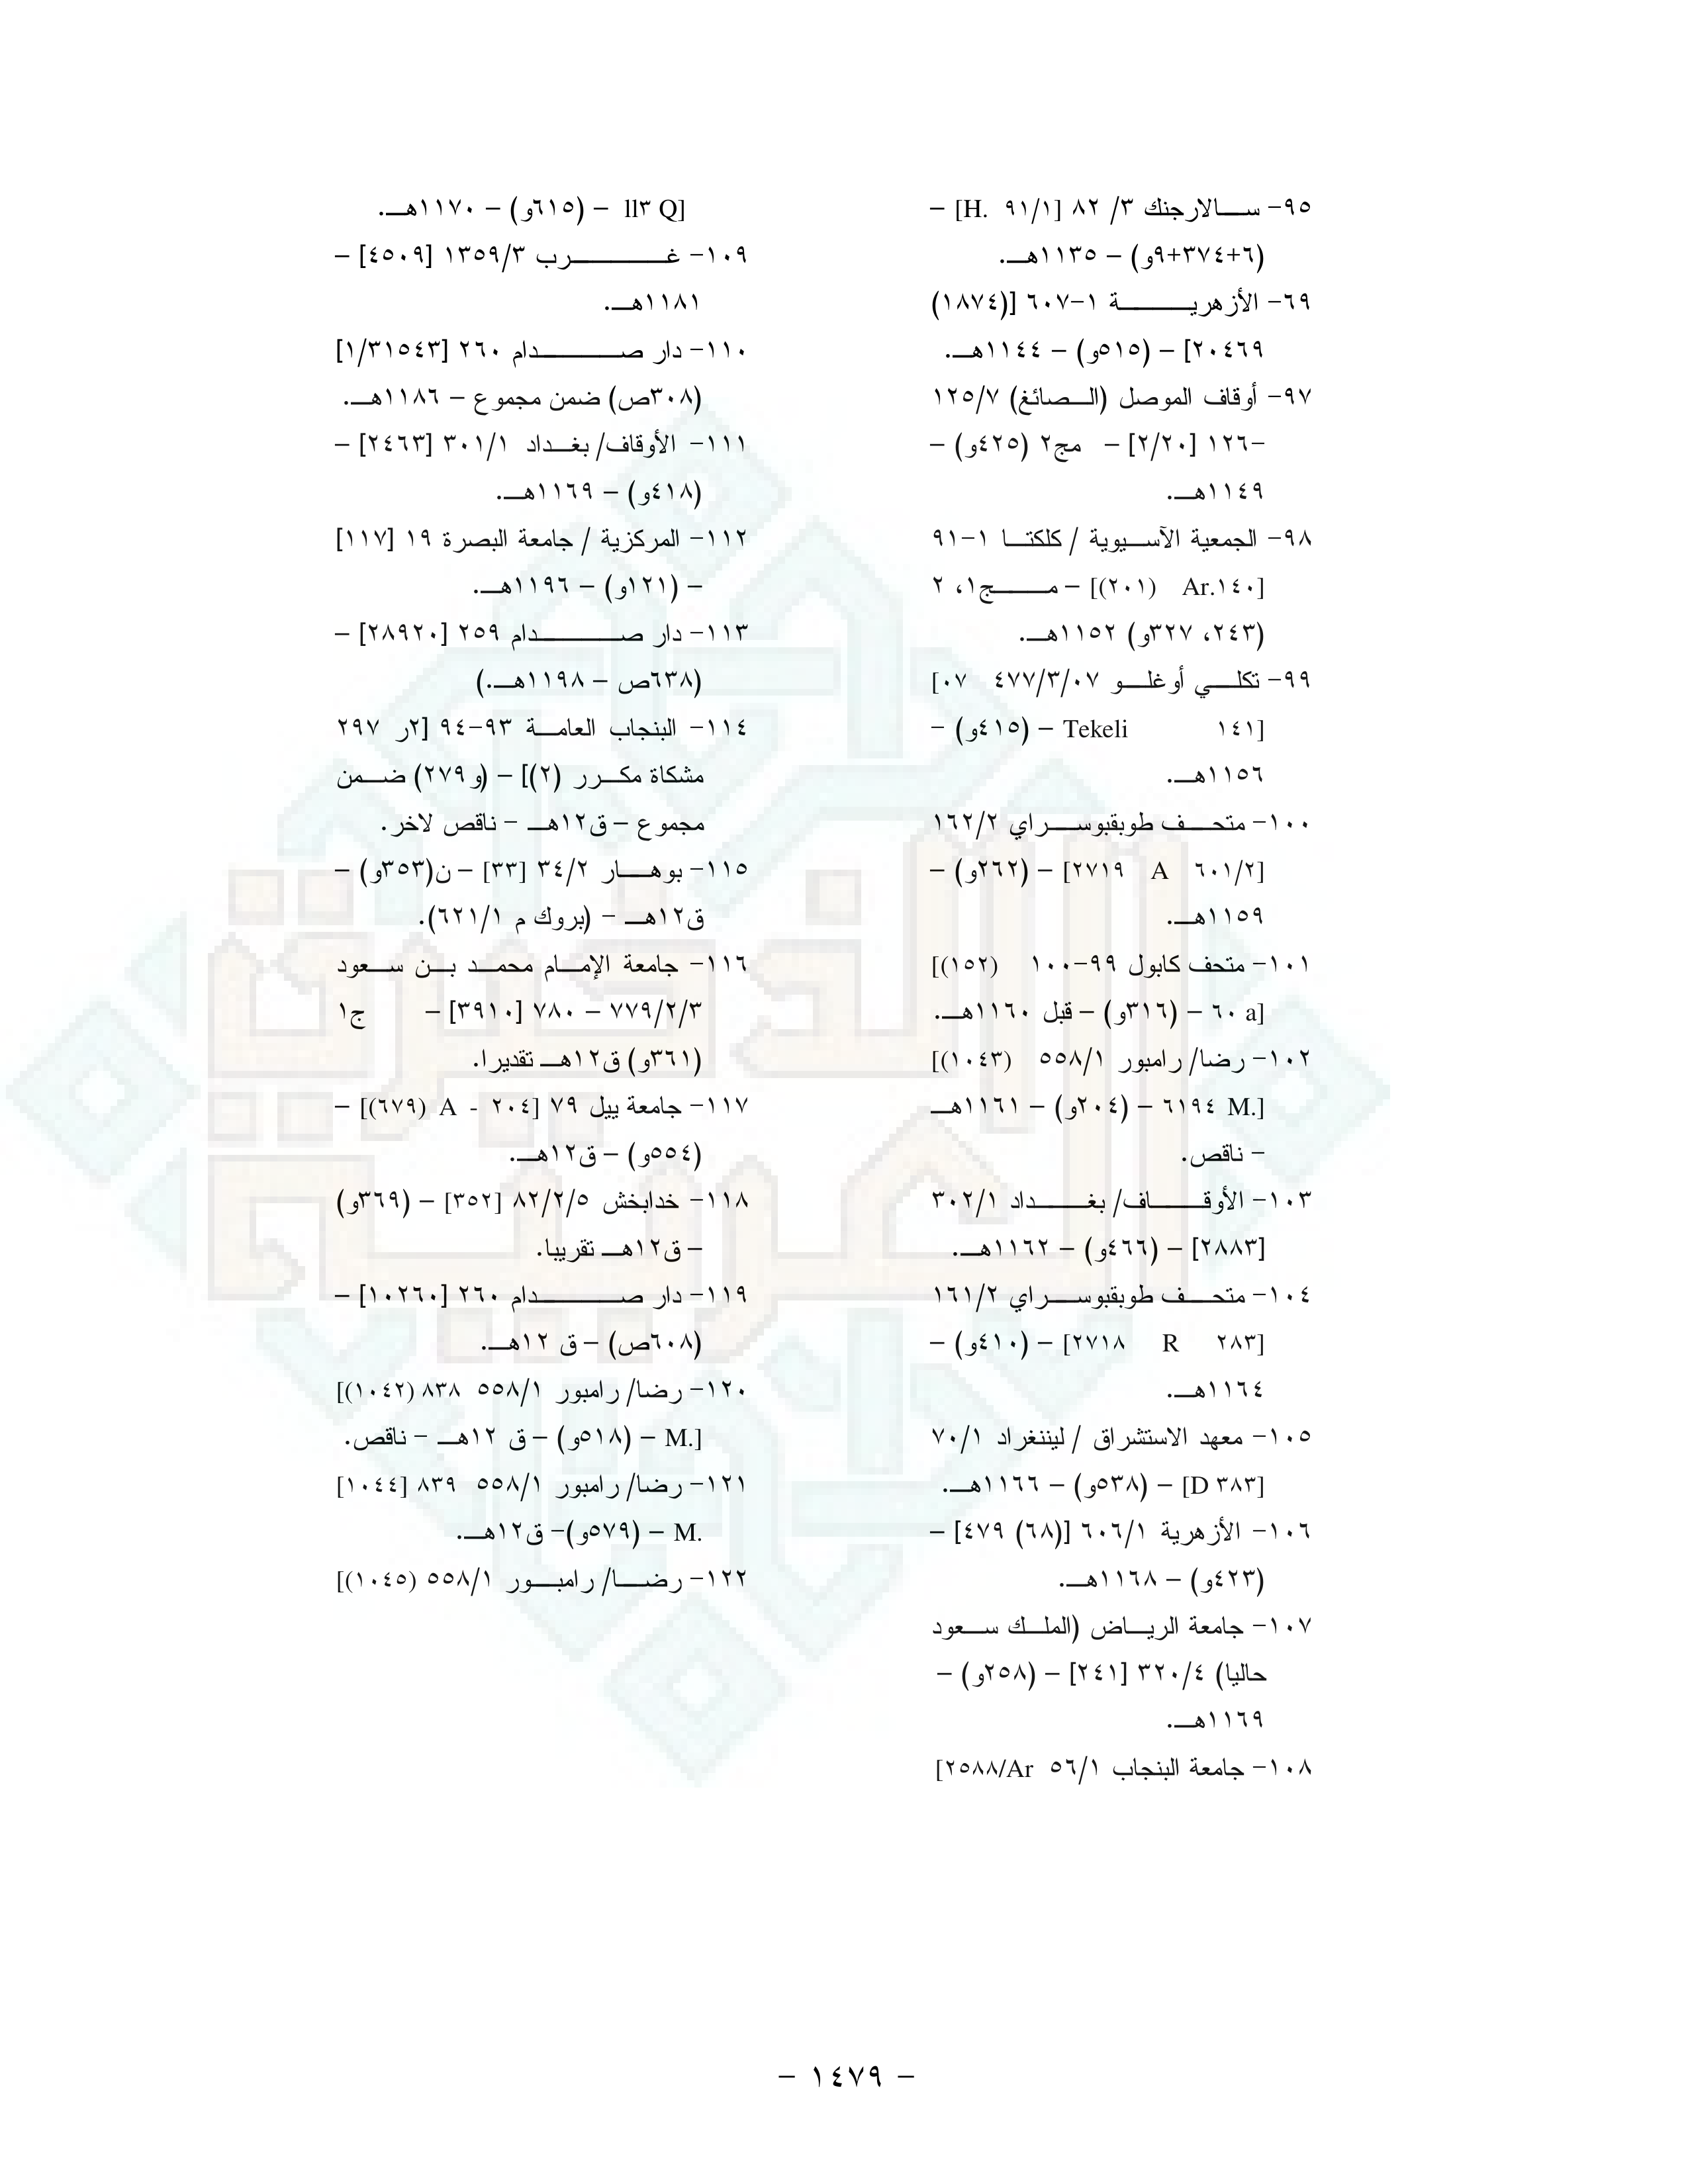 ٩٥- سالارجنك ٣/ ٨٢ [٩١/١ .H] –
(٦+٣٧٤+٩و) – ١١٣٥هـ.
٦٩- الأزهرية ١-٦٠٧ [(١٨٧٤)
٢٠٤٦٩] – (٥١٥و) – ١١٤٤هـ.
٩٧- أوقاف الموصل (الصائغ) ١٢٥/٧
-١٢٦ [٢/٢٠] – مج٢ (٤٢٥و) –
١١٤٩هـ.
٩٨- الجمعية الآسيوية / كلكتا ١-٩١
[Ar.١٤٠ (٢٠١)] – مج١، ٢
(٢٤٣، ٣٢٧و) ١١٥٢هـ.
٩٩- تكلي أوغلو ٤٧٧/٣/٠٧ [٠٧
١٤١] Tekeli – (٤١٥و) –
١١٥٦هـ.
١٠٠- متحف طوبقبوسراي ١٦٢/٢
[٢٧١٩ A ٦٠١/٢] – (٢٦٢و) –
١١٥٩هـ.
١٠١- متحف كابول ٩٩-١٠٠ [(١٥٢)
٦٠ a] – (٣١٦و) – قبل ١١٦٠هـ.
١٠٢- رضا/ رامبور ٥٥٨/١ [(١٠٤٣)
٦١٩٤ M.] – (٢٠٤و) – ١١٦١هـ
– ناقص.
١٠٣- الأوقاف/ بغداد ٣٠٢/١
[٢٨٨٣] – (٤٦٦و) – ١١٦٢هـ.
١٠٤- متحف طوبقبوسراي ١٦١/٢
[٢٧١٨ R ٢٨٣] – (٤١٠و) –
١١٦٤هـ.
١٠٥- معهد الاستشراق / ليننغراد ٧٠/١
[D ٣٨٣] – (٥٣٨و) – ١١٦٦هـ.
١٠٦- الأزهرية ٦٠٦/١ [(٦٨) ٤٧٩] –
(٤٢٣و) – ١١٦٨هـ.
١٠٧- جامعة الرياض (الملك سعود
حاليا) ٣٢٠/٤ [٢٤١] – (٢٥٨و) –
١١٦٩هـ.
١٠٨- جامعة البنجاب ٥٦/١ [٢٥٨٨/Ar
ll٣ Q] – (٦١٥و) – ١١٧٠هـ.
١٠٩- غرب ١٣٥٩/٣ [٤٥٠٩] –
١١٨١هـ.
١١٠- دار صدام ٢٦٠ [١/٣١٥٤٣]
(٣٠٨ص) ضمن مجموع – ١١٨٦هـ.
١١١- الأوقاف/ بغداد ٣٠١/١ [٢٤٦٣] –
(٤١٨و) – ١١٦٩هـ.
١١٢- المركزية / جامعة البصرة ١٩ [١١٧]
– (١٢١و) – ١١٩٦هـ.
١١٣- دار صدام ٢٥٩ [٢٨٩٢٠] –
(٦٣٨ص – ١١٩٨هـ.)
١١٤- البنجاب العامة ٩٣-٩٤ [٢ر ٢٩٧
مشكاة مكرر (٢)] – (و٢٧٩) ضمن
مجموع – ق١٢هـ – ناقص لاخر.
١١٥- بوهار ٣٤/٢ [٣٣] – ن(٣٥٣و) –
ق١٢هـ – (بروك م ٦٢١/١).
١١٦- جامعة الإمام محمد بن سعود
٧٧٩/٢/٣ – ٧٨٠ [٣٩١٠] – ج١
(٣٦١و) ق١٢هـ تقديرا.
١١٧- جامعة ييل ٧٩ [٢٠٤ - A (٦٧٩)] –
(٥٥٤و) – ق١٢هـ.
١١٨- خدابخش ٨٢/٢/٥ [٣٥٢] – (٣٦٩و)
– ق١٢هـ تقريبا.
١١٩- دار صدام ٢٦٠ [١٠٢٦٠] –
(٦٠٨ص) – ق ١٢هـ.
١٢٠- رضا/ رامبور ٥٥٨/١ [(١٠٤٢) ٨٣٨
M.] – (٥١٨و) – ق ١٢هـ – ناقص.
١٢١- رضا/ رامبور ٥٥٨/١ ٨٣٩ [١٠٤٤]
M. – (٥٧٩و)– ق١٢هـ.
١٢٢- رضا/ رامبور ٥٥٨/١ [(١٠٤٥)
– ١٤٧٩ –